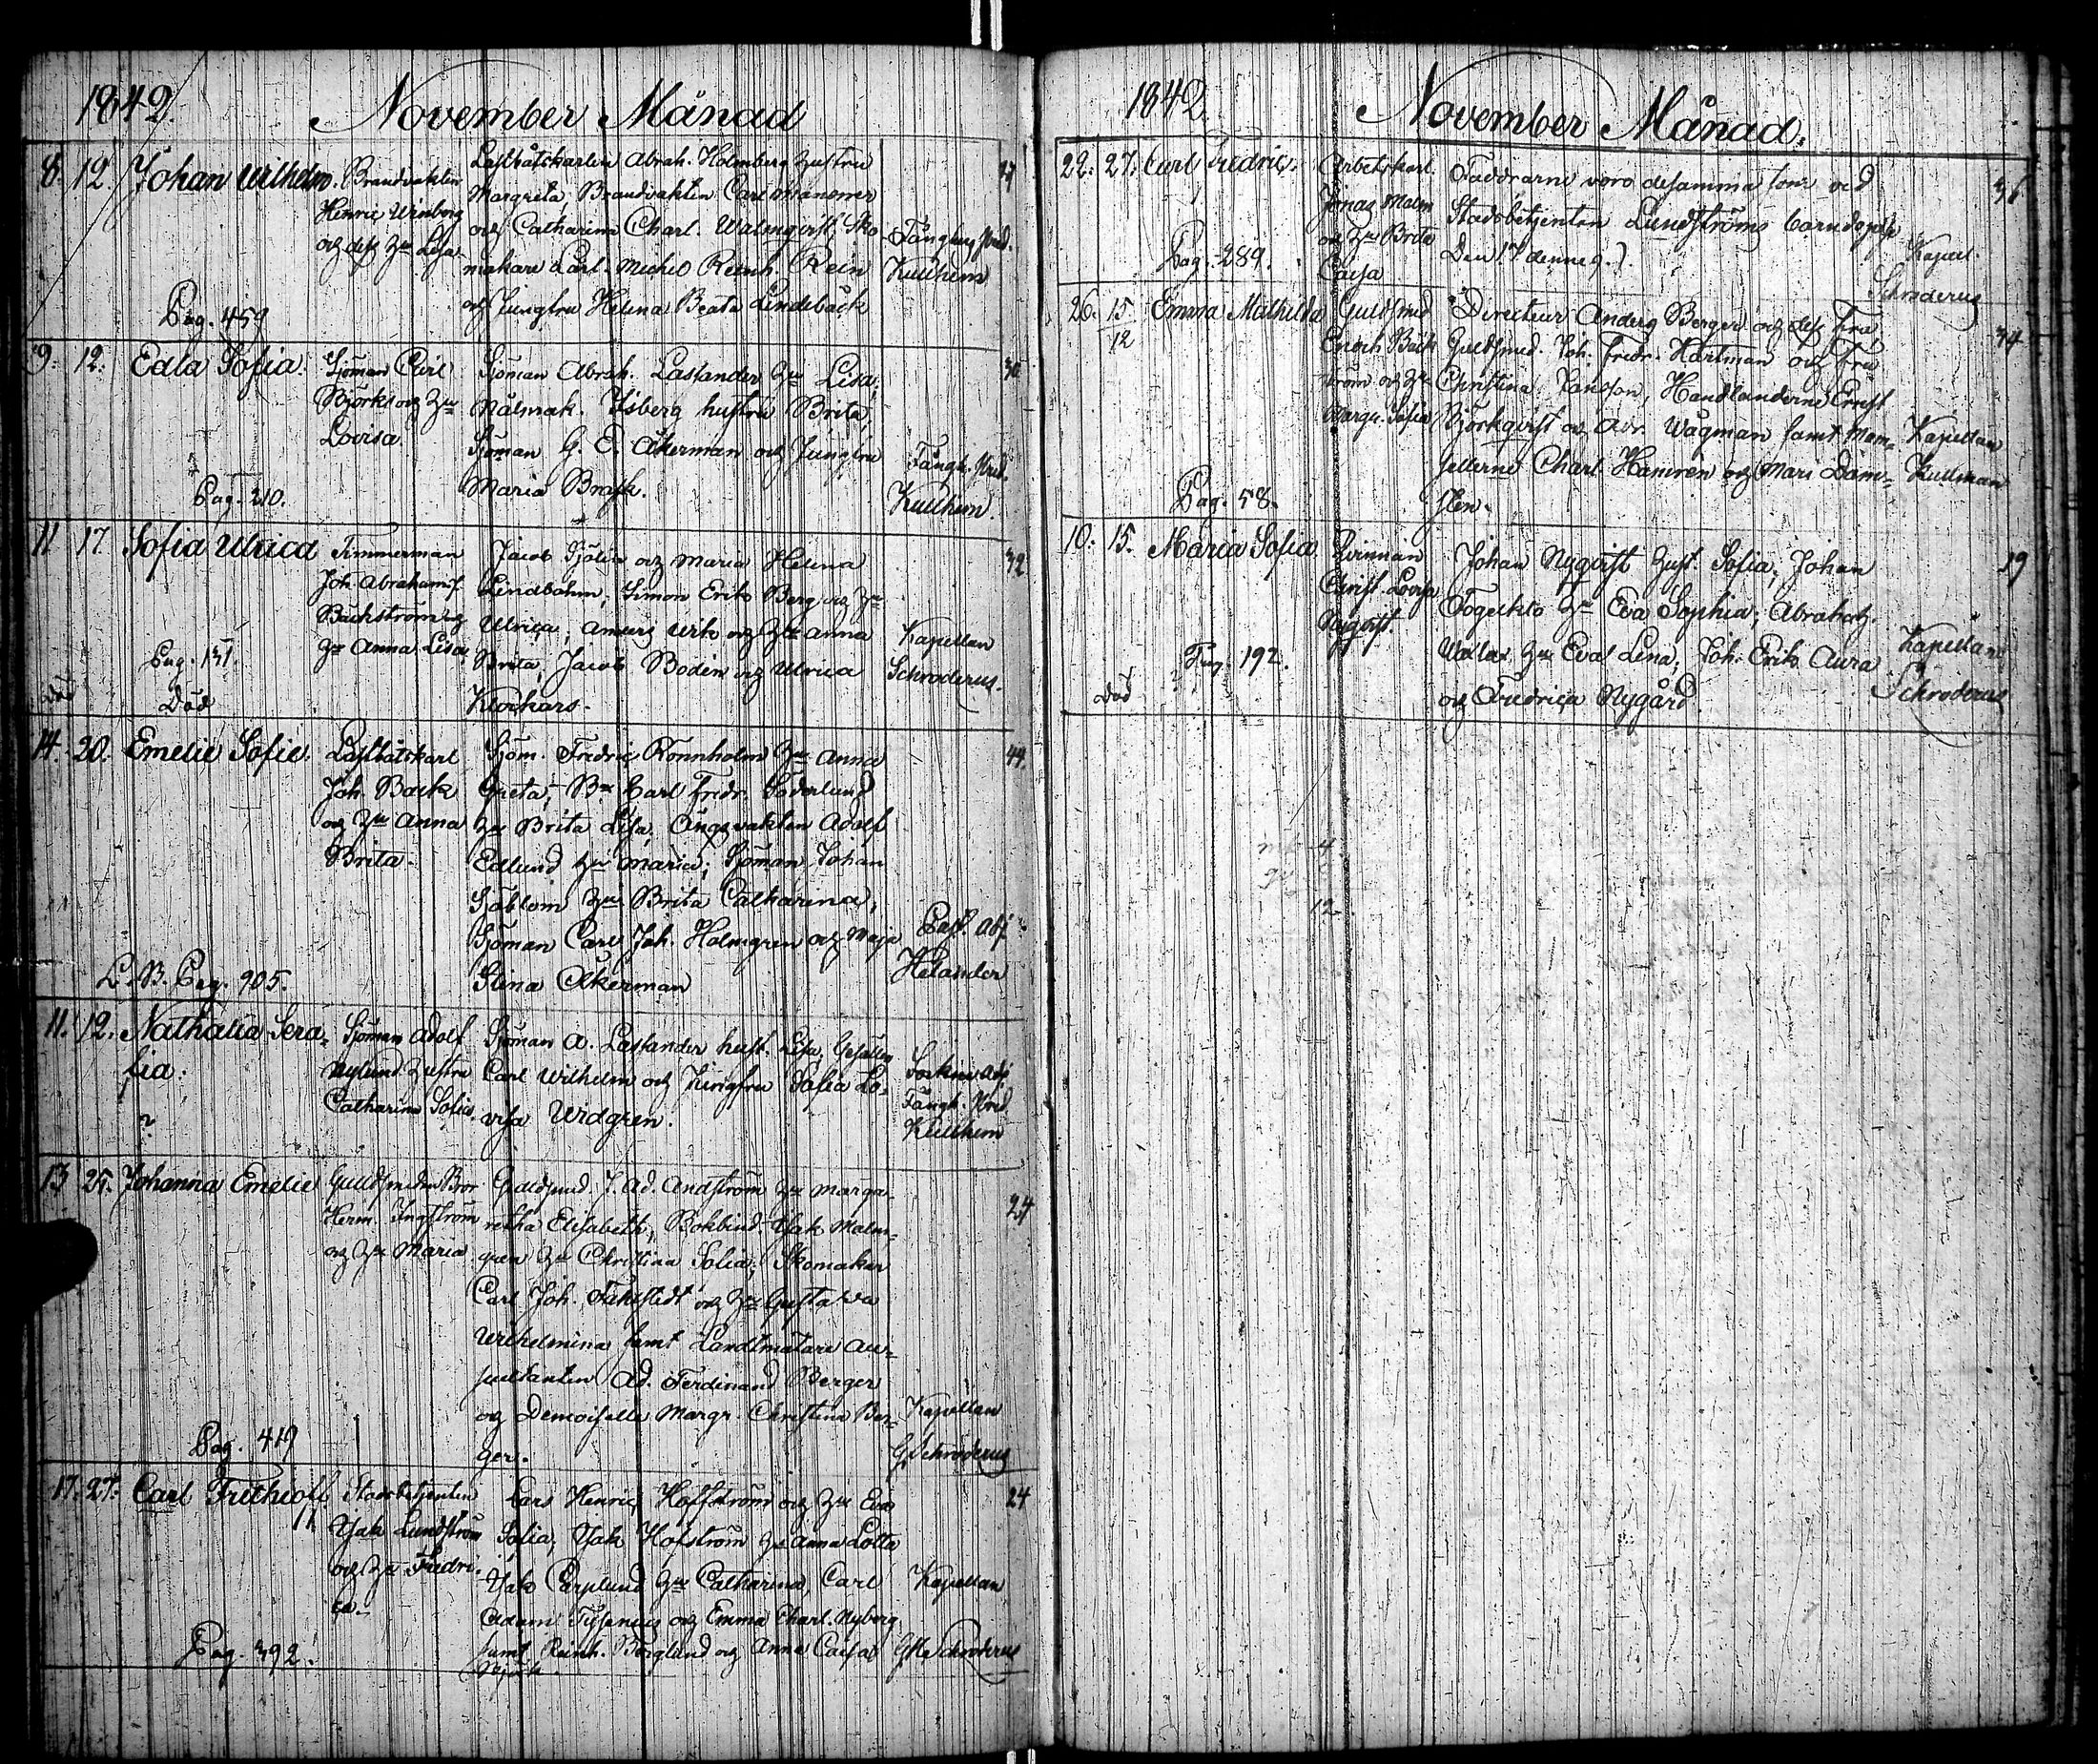 1842. November Månad
8. 12. Johan Wilhelm. Brandvakten Henric Winborg och dess Hu Lisa
Lastbåtskarlen Abrah. Holmberg Hustru
Margreta, Brandvakten Carl
och Catharina Charl. Walmqvist, Sko-
makare Lärl. Michel Reinh. Rein
och Jungfru Helena Beata Lindebäck
Fångh. Pred.
Kullhem
17
Pag. 459
9. 12. Edla Sofia. Sjöman Carl Björk och Hu Lovisa
Sjöman Abrah. Lastander Hu Lisa,
Nålmak. Isberg hustru Brita,
Sjöman G. E. Åkerman och Jungfru
Maria Brask.
Fångh. Pred.
Kullhem.
Pag. 210.
11 17. Sofia Ulrica Timmerman Joh. Abrahamsf. Bäckström och Hu Anna Lisa
Jacob Sjölin och Maria Helena
Lindbohm, Simon Erik Berg och Hu
Ulrica, Anders Urk och Hu Anna
Brita, Jacob Bodén och Ulrica
Klockars.
Kapellan
Schroderus.
32
Pag. 131.
Död
14. 20. Emelie Sofie. Lastbåtskarl Joh. Back och Hu Anna Brita.
Sjöm. Fredric Rönnholm Hu Anna
Greta, Carl Fredr. Söderlund
Hu Brita Lisa, Ångsvakten Adolf
Edlund Hu Maria; Sjöman Johan
Sjöblom Hu Brita Catharina,
Sjöman Carl Joh. Holmgren och Maja
Stina Åkerman
Past. Adj.
Helander
44
L. B. Pag. 905.
11. 12. Nathalia Sera-
fia:
Sjöman Adolf Nylund Hustru Catharina Sofia.
Sjöman A. Lastander hust. Lisa, Gesällen
Carl Wilhelm och Jungfru Sofia Lo-
visa Widgren.
Sockne Adj.
Fångh. Pred.
Kullhem
?
13 25. Johanna Emelie Guldsmeden Bror Herm. Ingström och Hu Maria
Guldsmed. J. Ad. Andström Hu Marga-
retha Elisabeth, Bokbind. Isak Malm-
gren Hu Christina Sofia; Skomakar
Carl Joh. Fahlstedt och Hu Gustafva
Wilhelmina samt Landtmätare Au-
scultanten Ad. Ferdinand Berger
och Demoiselle Margr. Christina Ber-
ger.
Kapellan
G. Schroderus
24
Pag. 419
17. 27. Carl Frithioff Stadsbetjenten Isak Lundström och Hu Fredri-
ca.
Lars Henric Hoffström och Hu Eva
Sofia, Isak Hofström Hu Anna Lotta
Isak Carplund Hu Catharina, Carl
Adam och Emma Charl. Nyberg
samt Reinh. Berglund och Anna Caisa
Björk.
Kapellan
Schroderus
24
Pag. 392.
1842. November Månad.
22. 27. Carl Fredric. Arbetskarl. Jonas Malm och Hu Brita Caisa
Faddrarne voro desamma som vid
Stadsbetjenten Lundströms barndop
Den 17 dennes.).
Kapell.
Schroderus
36
Pag. 289.
26. 15/12 Emma Mathilda Guldsmed Enoch Bäckström och Hu Margr. Sofia
Directeur Anders Berger och dess Fru,
Guldsmed. Joh. Fredr. Hartman och Fru
Christina Jansson, Handlanderne Ernst
Björkqvist och Adr. Wågman samt Mam-
sellerne Charl. Hamrén och Mari Dam-
sten.
Kapellan
Kullman
34
Pag. 58.
10. 15. Maria Sofia Qvinnan Christ. Lovisa Nyqvist.
Johan Nyqvist Hust. Sofia, Johan
Fogelklo Hu Eva Sophia; Abrah.
Hu Eva Lena; Joh. Erik Aura
och Fredrica Nygård.
Kapellan
Schroderus
19
Pag. 192.
Död
12